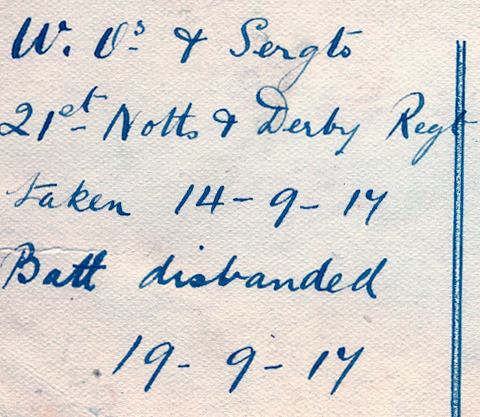 W. Os & Sergts
21st Notts & Derby Regt
taken 14-9-17
Batt disbanded
19-9-17